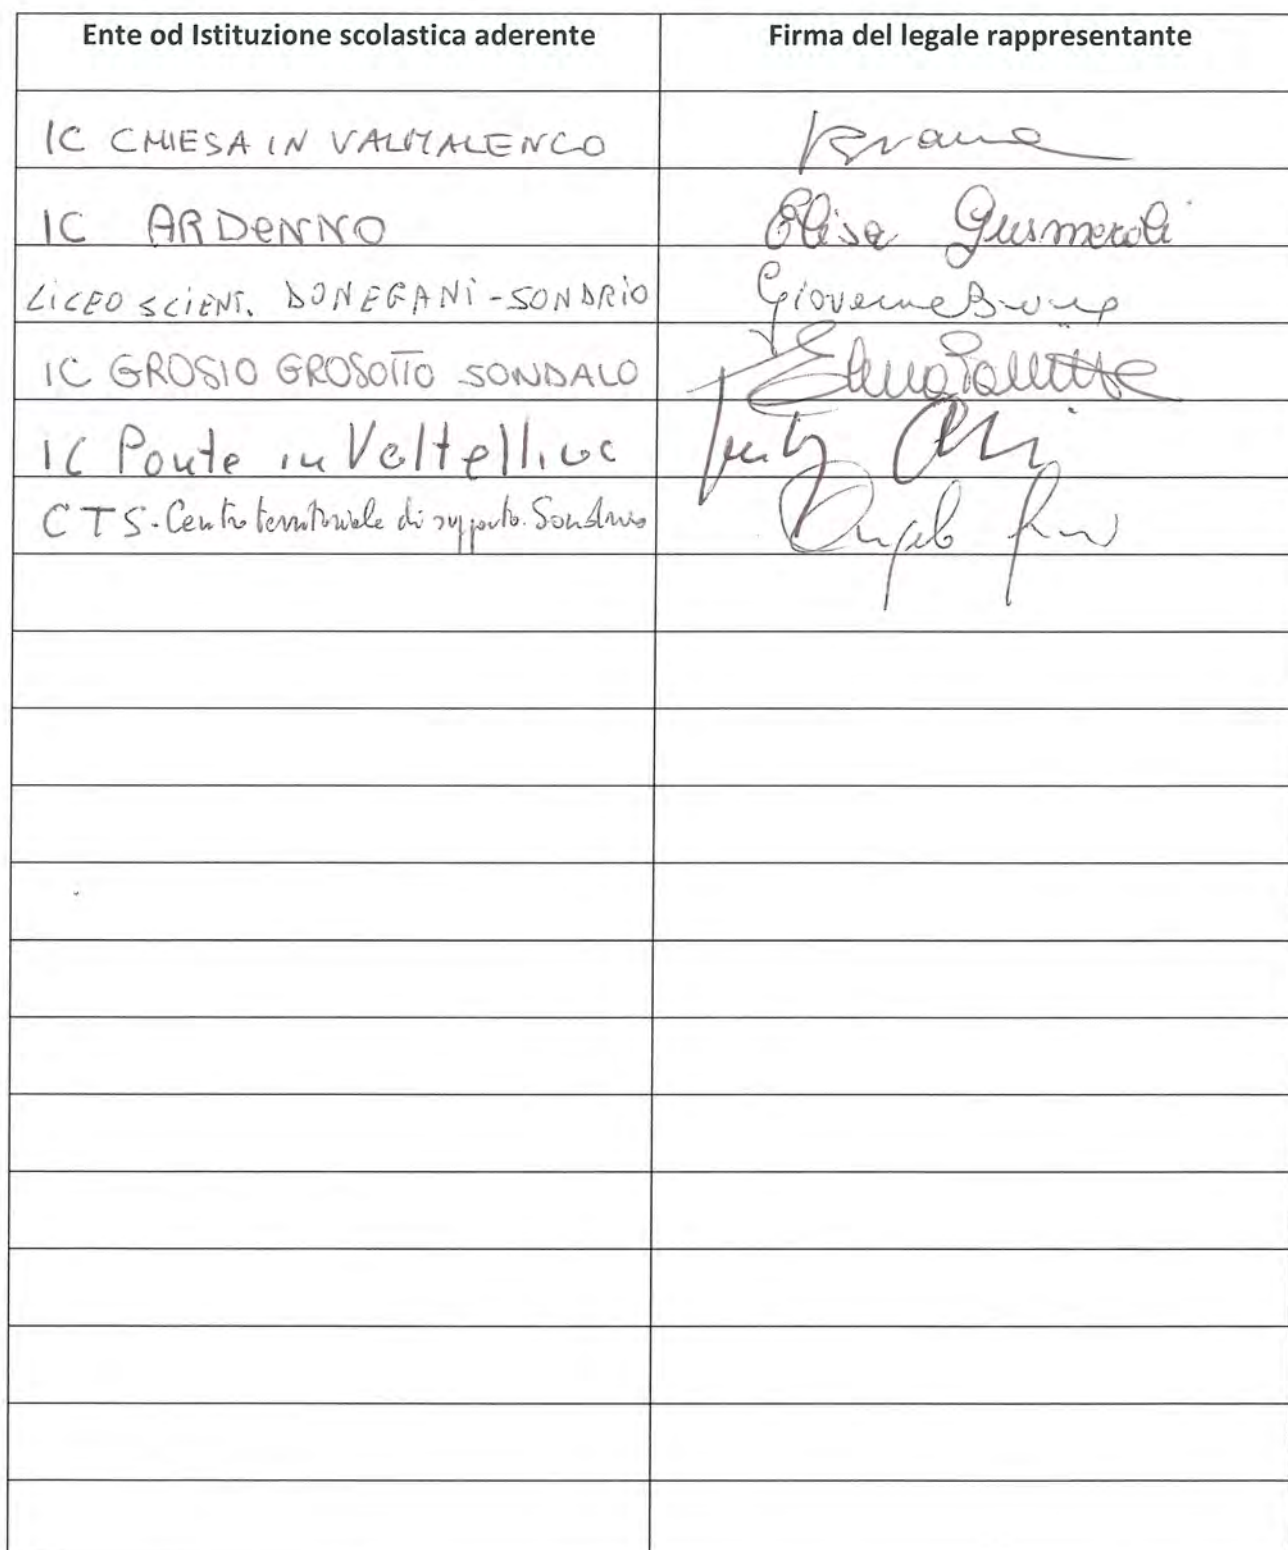 Ente od Istituzione scolastica aderente Firma del legale rappresentante
IC CHIESA IN VALMALENCO
IC ARDENNO Elisa Gusmeroli
LICEO SCIENT. DONEGANI - SONDRIO Giovanna Bruno
IC GROSIO GROSOTTO SONDALO Elena
IC Ponte in Valtellina
CTS - Centro territoriale di supporto. Sondrio Angelo